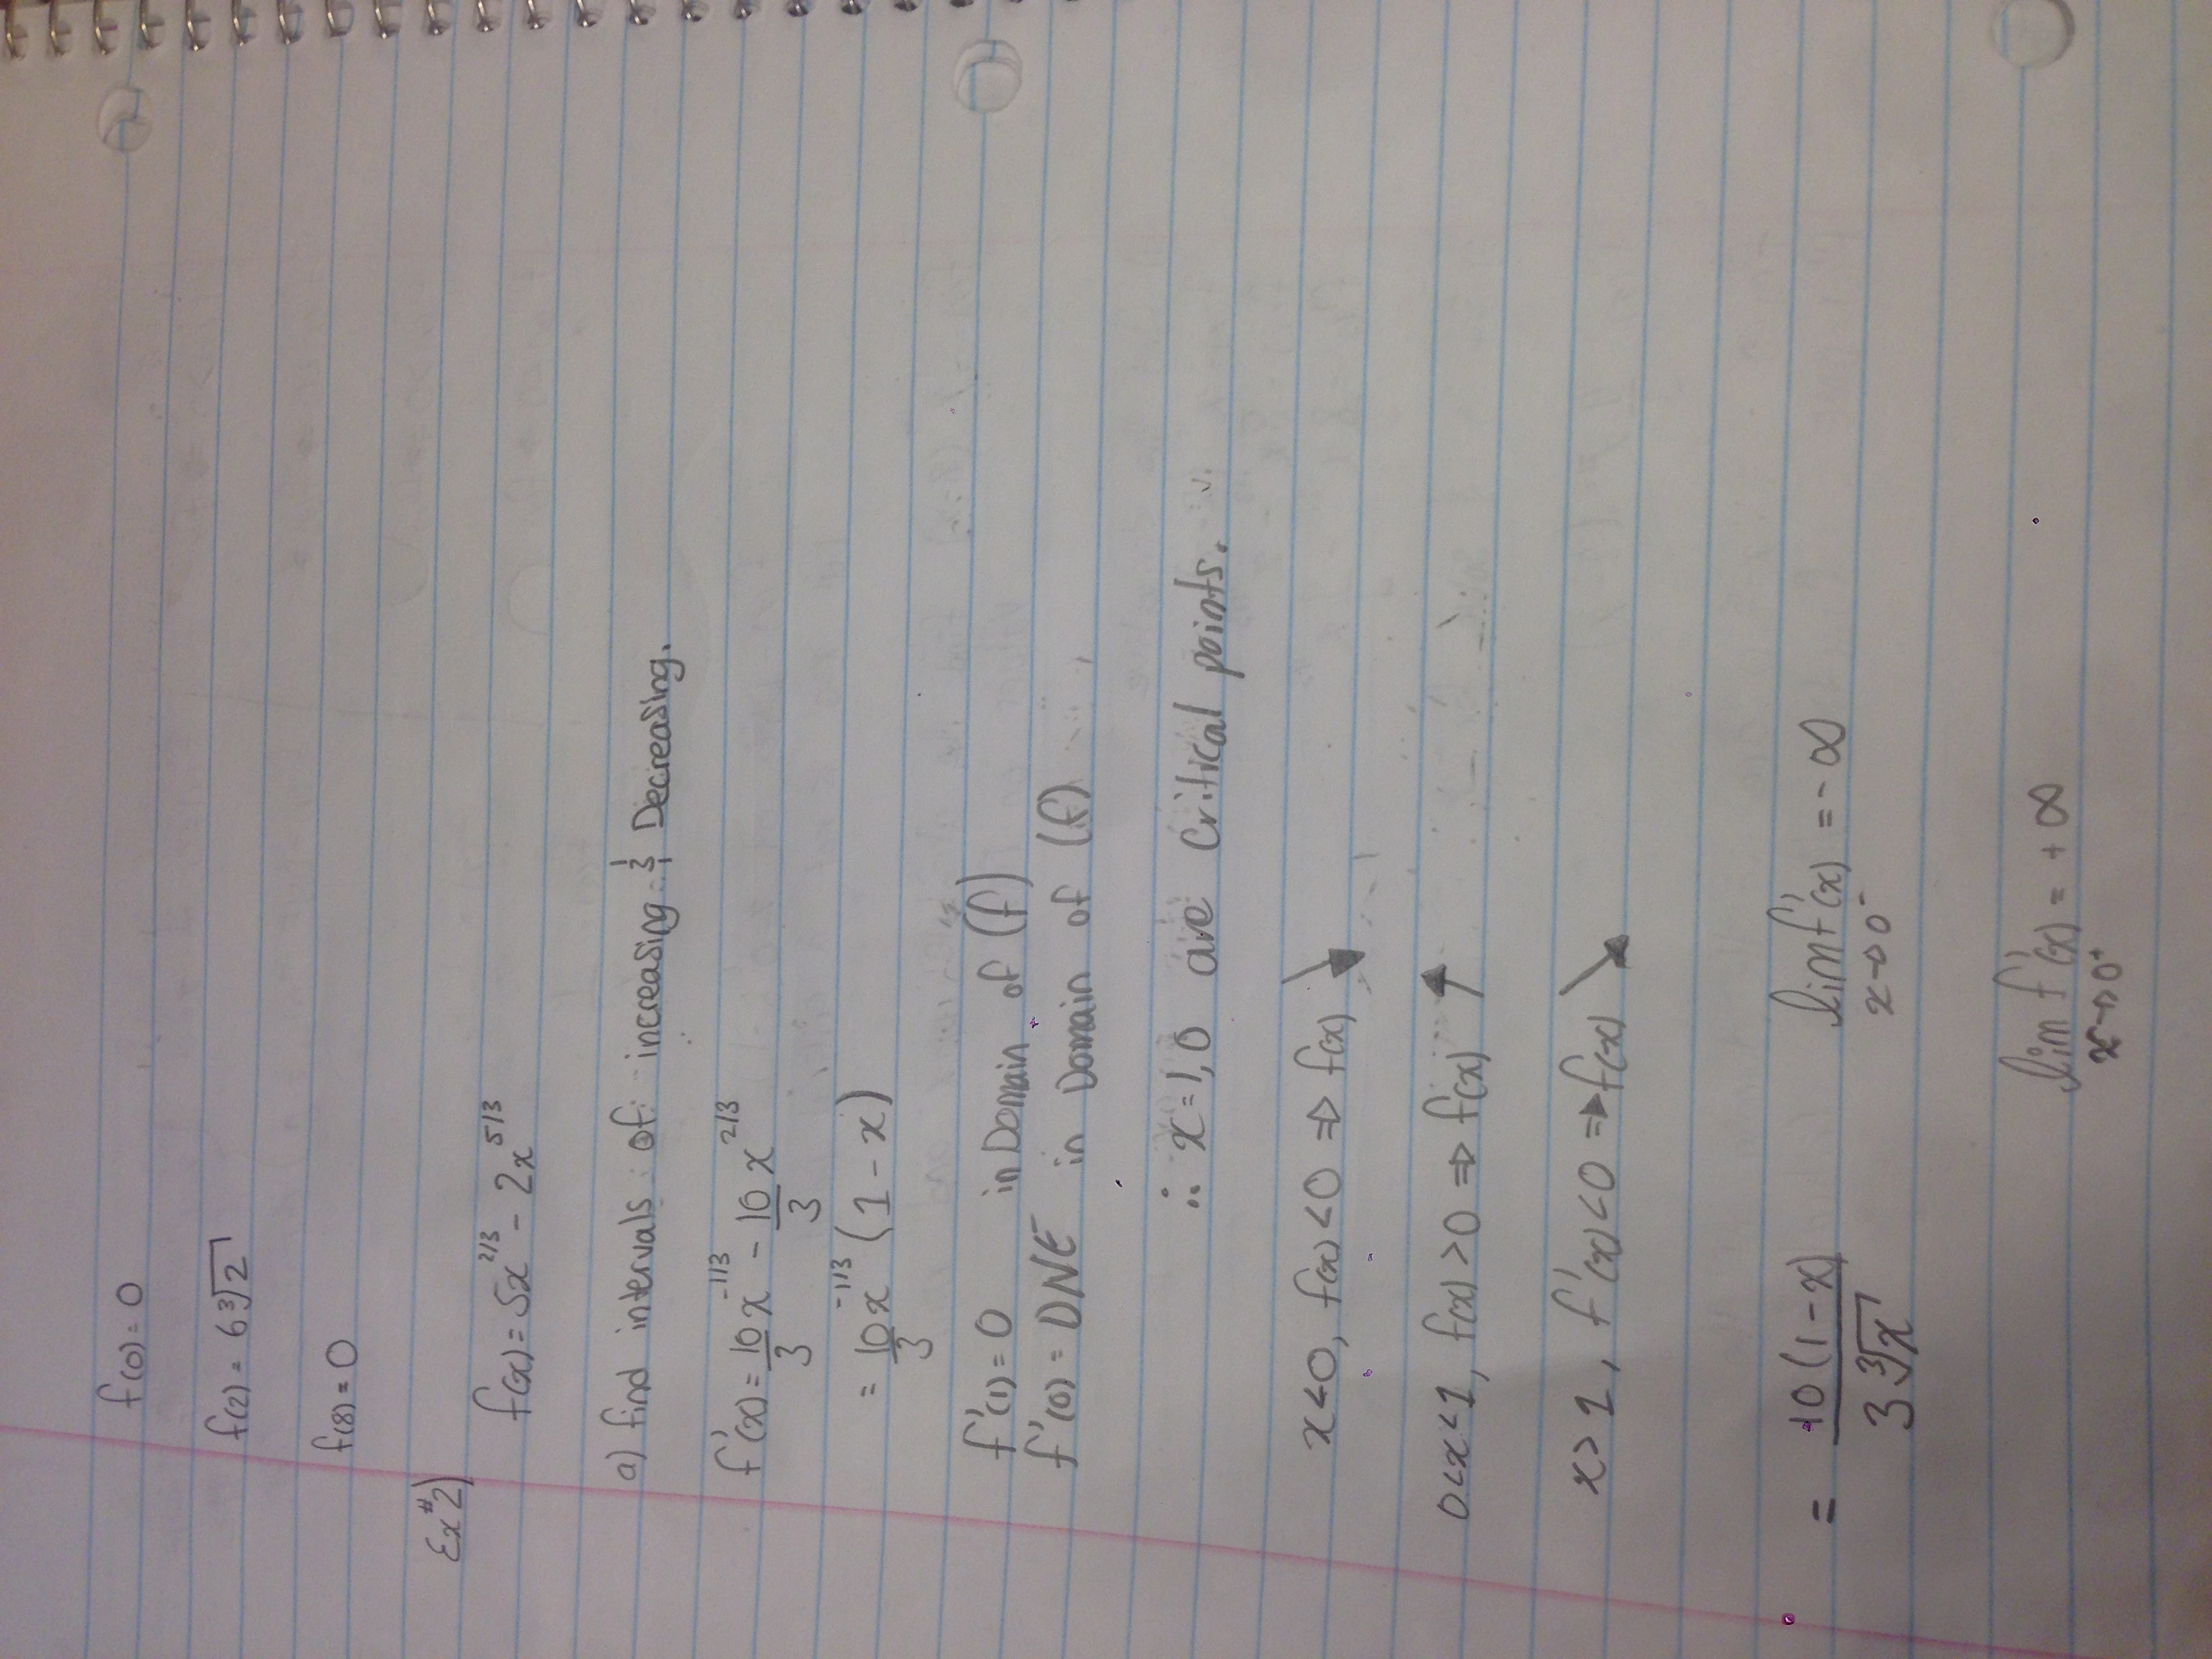 f(0) = 0
f(2) = 6∛2
f(8) = 0
Ex#2)
f(x) = 5x^2/3 - 2x^5/3
a) find intervals of increasing & Decreasing.
f'(x) = 10/3 x^-1/3 - 10/3 x^2/3
= 10/3 x^-1/3 (1 - x)
f'(1) = 0 in Domain of (f)
f'(0) = DNE in Domain of (f)
∴ x = 1, 0 are Critical points.
x < 0, f(x) < 0 ⇒ f(x) ↘
0 < x < 1, f(x) > 0 ⇒ f(x) ↗
x > 1, f'(x) < 0 ⇒ f(x) ↘
= 10(1-x)/3∛x lim f'(x) = -∞
x→0⁻
lim f'(x) = +∞
x→0⁺